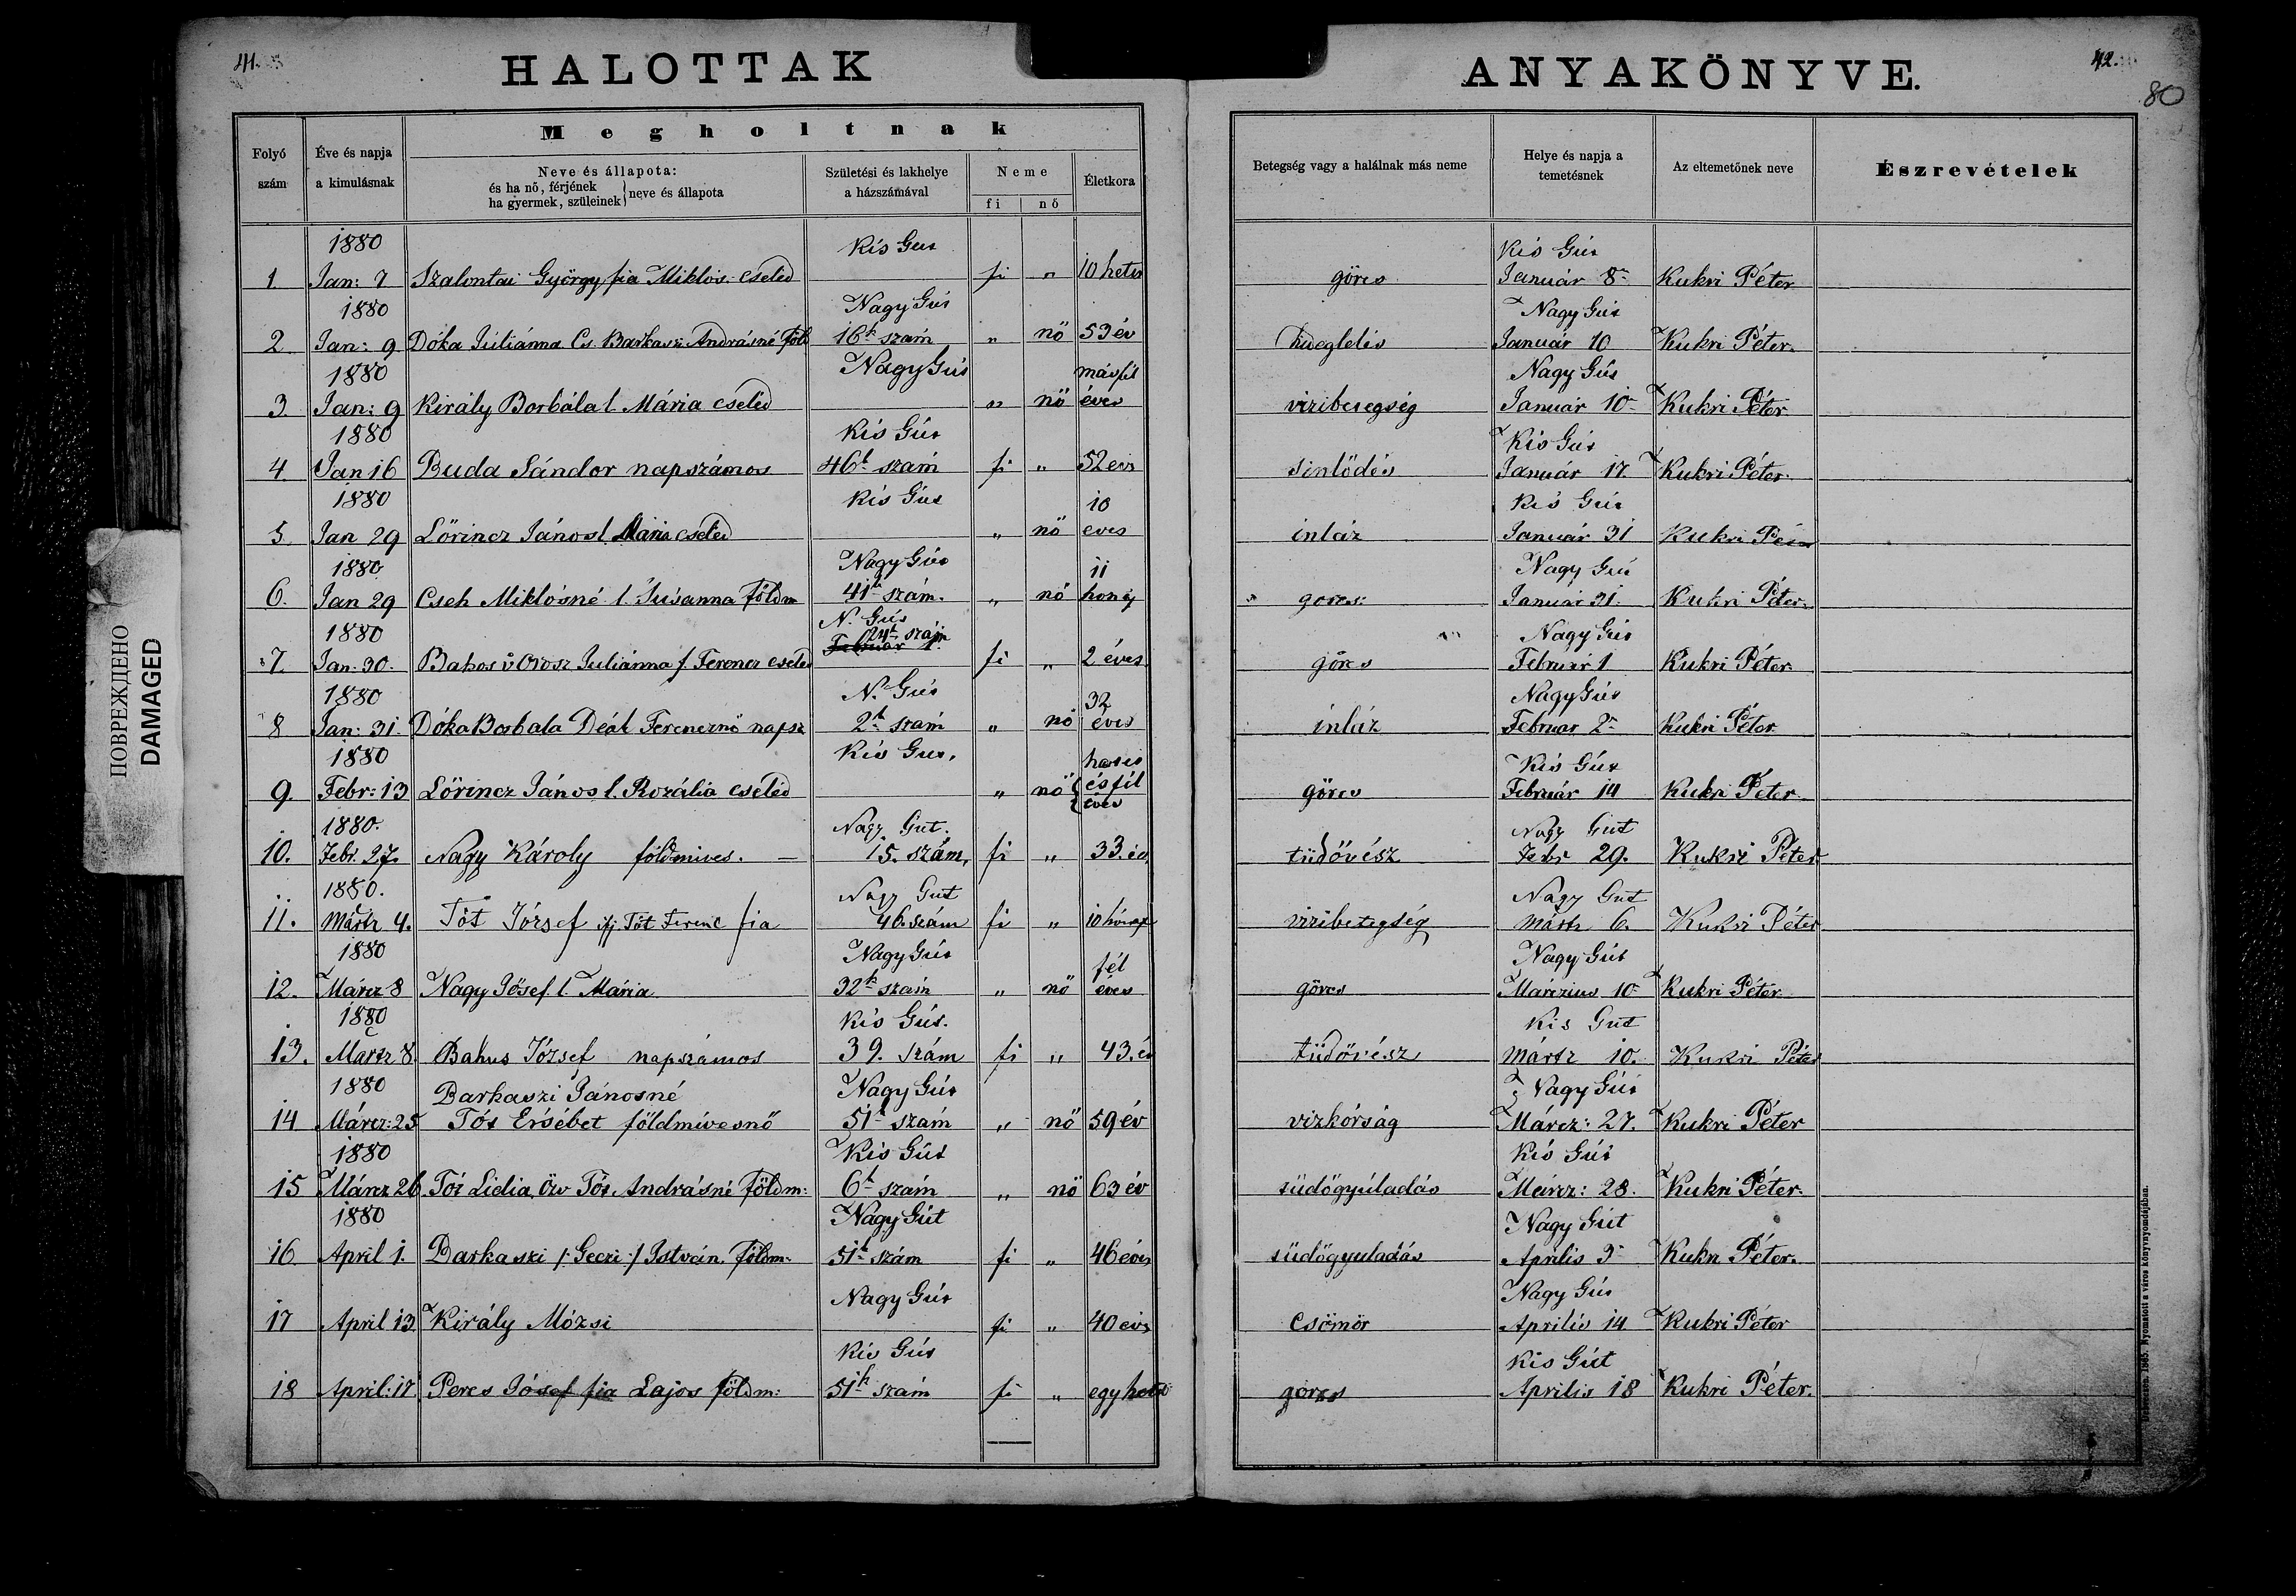 41.
HALOTTAK
Megholtnak
Folyó szám
Éve és napja a kimulásnak
Neve és állapota:
és ha nő, férjének
ha gyermek, szüleinek } neve és állapota
Születési és lakhelye a házszámával
Neme
fi nő
Életkora
1880 Kis Gut
1 Jan: 7 Szalontai György fia Miklós cseléd fi „ 10 hetes
1880 Nagy Gút
2 Jan: 9 Dóka Juliánna Cs. Barkaszi Andrásné föld 16k szám „ nö 53 év
1880 Nagy Gút másfél
3 Jan: 9 Király Borbála l. Mária cseléd „ nö éves
1880 Kis Gút
4 Jan 16 Buda Sándor napszámos 46k szám fi „ 52 évs
1880 Kis Gút 10
5 Jan 29 Lörincz János l. Mária cseléd „ nö eves
1880 Nagy Gút 11
6. Jan 29 Cseh Miklósné l. Susanna földm 41k szám. „ nö
1880 N. Gút
24k szám
Február 1.
7. Jan: 30. Bakos v Orosz Juliánna f. Ferencz cseléd fi „ 2 éves
1880 N. Gút 32
8 Jan: 31. Dóka Borbala Deák Ferencznö napsz 2k szám „ nö éves
1880 Kis Gut.
9. Febr: 13 Lörincz János l. Rozália cseléd „ nö { és fél
éves
1880. Nagy Gut.
10. Febr. 27. Nagy Károly földmives. — 15. szám, fi „ 33. év
1880. Nagy Gut
11. Mártz 4. Tót József ifj Tót Ferenc fia 46. szám fi „ 10 hónap
1880 Nagy Gút fél
12. Márcz 8 Nagy Jósef l. Mária 32k szám „ nö éves
1880 Kis Gút.
13. Mártz 8. Bakus József napszámos 39. szám fi „ 43. év
1880 Barkaszi Jánosné Nagy Gút
14 Márcz: 25 Tót Ersébet földmívesnő 51k szám „ nö 59 év
1880 Kis Gút
15 Márcz 26 Tót Lidia Özv Tót Andrásné földm: 6k szám „ nö 63 év
1880 Nagy Gút
16. April 1. Barkaszi /: Geczi :/ István. földm: 51k szám fi „ 46 éves
Nagy Gút
17 April 13. Király Mózsi fi „ 40 évs
Kis Gút
18 April: 17. Peres Jósef fia Lajos földm: 51k szám fi „ egy hetes
42.
80
ANYAKÖNYVE.
Betegség vagy a halálnak más neme
Helye és napja a temetésnek
Az eltemetőnek neve
Észrevételek
Kis Gút
görcs Január 8 Kukri Péter
Nagy Gút
Január 10 Kukri Péter.
Nagy Gút
vizibetegség Január 10 Kukri Péter
Kis Gút
sinlödés Január 17. Kukri Péter.
Kis Gút
inláz Január 31 Kukri Péter
Nagy Gút
gorcs: Január 31. Kukri Péter.
Nagy Gút
görcs Február 1 Kukri Péter
Nagy Gút
inláz Február 2 Kukri Péter
Kis Gút
görcs Február 14 Kukri Péter
Nagy Gut
tüdővész Febr 29. Kukri Péter
Nagy Gut
vizibetegség Mártz 6. Kukri Péter
Nagy Gút
görcs Márczius 10 Kukri Péter
Kis Gut
tüdővész Mártz 10. Kukri Péter
Nagy Gút
vizkórság Márcz: 27. Kukri Péter
Kis Gút
tüdögyúladás Márcz: 28. Kukri Péter.
Nagy Gút
tüdögyuladás Aprilis 3 Kukri Péter.
Nagy Gút
Csömör Aprilis 14 Kukri Péter
Kis Gút
gorcs Aprilis 18 Kukri Péter.
Debreczen. 1865. Nyomatott a város könyvnyomdájában.
ПОВРЕЖДЕНО
DAMAGED